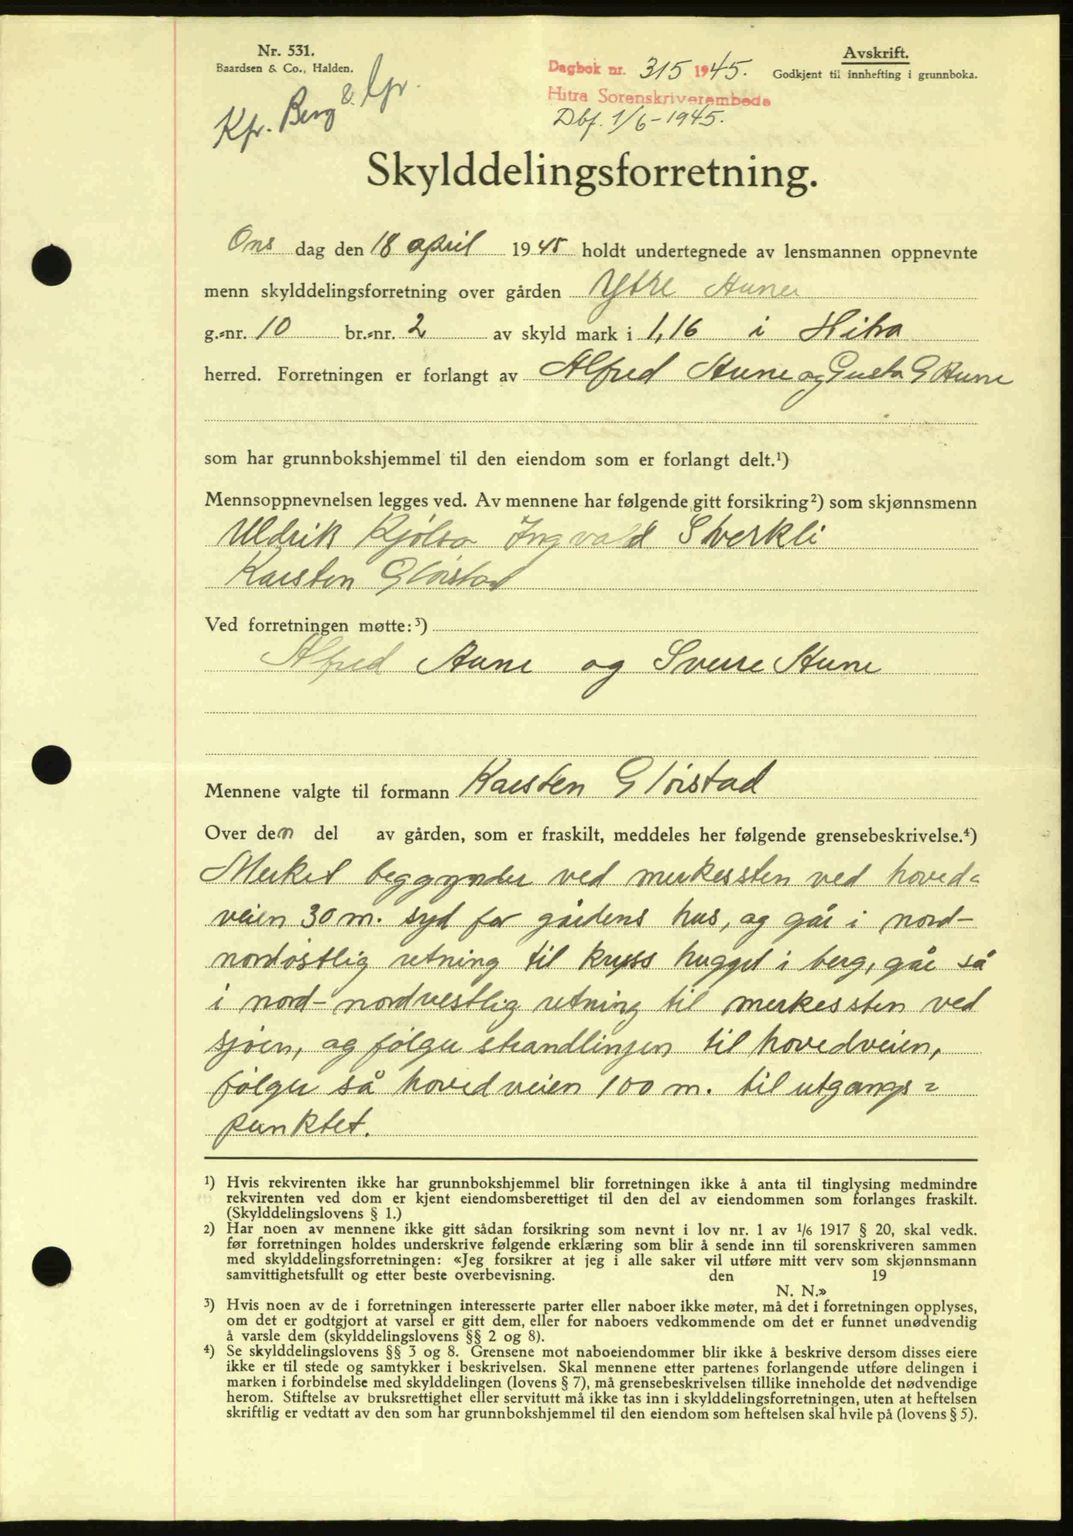 Nr. 531.
Baardsen & Co., Halden.
Kfr. Berg & Gr.
Dagbok nr. 315 1945.
Hitra Sorenskriverembede
Dbf. 1/6-1945.
Avskrift.
Godkjent til innhefting i grunnboka.
Skylddelingsforretning.
Ons dag den 18 april 1945 holdt undertegnede av lensmannen oppnevnte
menn skylddelingsforretning over gården Ytre Aune
g.-nr. 10 br.-nr. 2 av skyld mark i 1,16 i Hitra
herred. Forretningen er forlangt av Alfred Aune og Gusta G Aune
som har grunnbokshjemmel til den eiendom som er forlangt delt.¹)
Mennsoppnevnelsen legges ved. Av mennene har følgende gitt forsikring²) som skjønnsmenn
Uldrik Kjølsø Ingvald Sterkli
Karsten Gløistad
Ved forretningen møtte:³)
Alfred Aune og Sverre Aune
Mennene valgte til formann Karsten Gløistad
Over den del av gården, som er fraskilt, meddeles her følgende grensebeskrivelse.⁴)
Merket beggynder ved merkessten ved hoved=
veien 30 m. syd for gårdens hus, og går i nord-
nordøstlig retning til kryss hugget i berg, går så
i nord-nordvestlig retning til merkessten ved
sjøen, og følger strandlinjen til hovedveien,
følger så hovedveien 100 m. til utgangs=
punktet.
¹) Hvis rekvirenten ikke har grunnbokshjemmel blir forretningen ikke å anta til tinglysing medmindre
rekvirenten ved dom er kjent eiendomsberettiget til den del av eiendommen som forlanges fraskilt.
(Skylddelingslovens § 1.)
²) Har noen av mennene ikke gitt sådan forsikring som nevnt i lov nr. 1 av 1/6 1917 § 20, skal vedk.
før forretningen holdes underskrive følgende erklæring som blir å sende inn til sorenskriveren sammen
med skylddelingsforretningen: «Jeg forsikrer at jeg i alle saker vil utføre mitt verv som skjønnsmann
samvittighetsfullt og etter beste overbevisning. den 19
N. N.»
³) Hvis noen av de i forretningen interesserte parter eller naboer ikke møter, må det i forretningen opplyses,
om det er godtgjort at varsel er gitt dem, eller for naboers vedkommende om det er funnet unødvendig
å varsle dem (skylddelingslovens §§ 2 og 8).
⁴) Se skylddelingslovens §§ 3 og 8. Grensene mot naboeiendommer blir ikke å beskrive dersom disses eiere
ikke er til stede og samtykker i beskrivelsen. Skal mennene etter partenes forlangende utføre delingen i
marken i forbindelse med skylddelingen (lovens § 7), må grensebeskrivelsen tillike inneholde det nødvendige
herom. Stiftelse av bruksrettighet eller servitutt må ikke tas inn i skylddelingsforretningen, uten at heftelsen
skriftlig er vedtatt av den som har grunnbokshjemmel til den eiendom som heftelsen skal hvile på (lovens § 5).